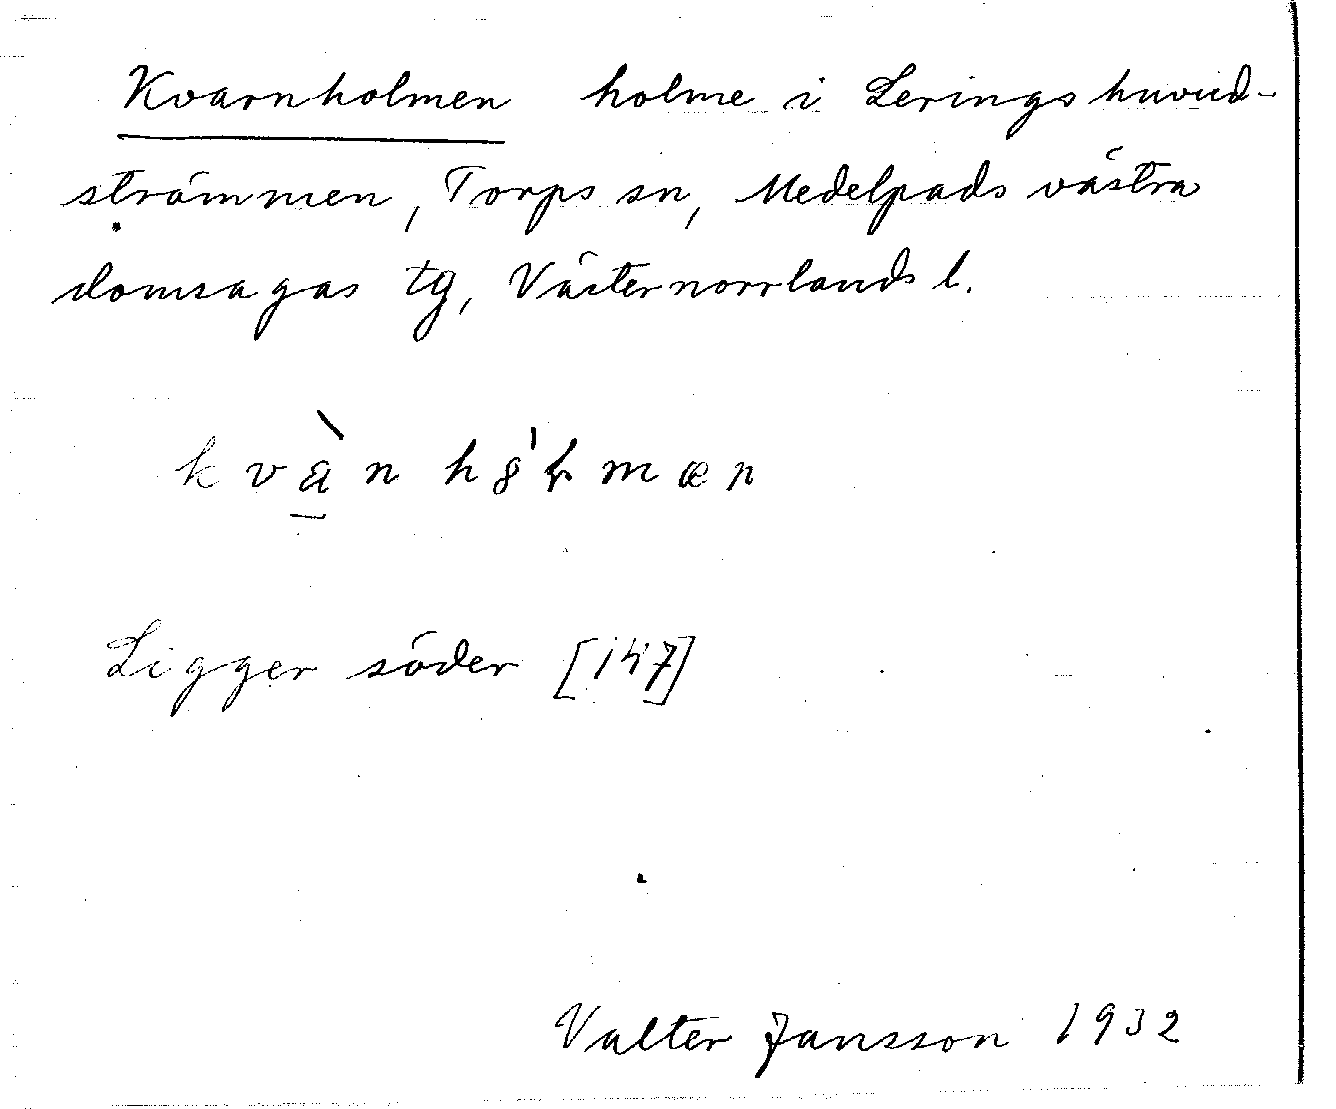 Kvarnholmen holme i Lerings huvud-
strömmen, Torps sn, Medelpads västra
domsagas tg, Västernorrlands l.
Ligger söder [147]
Valter Jansson 1932